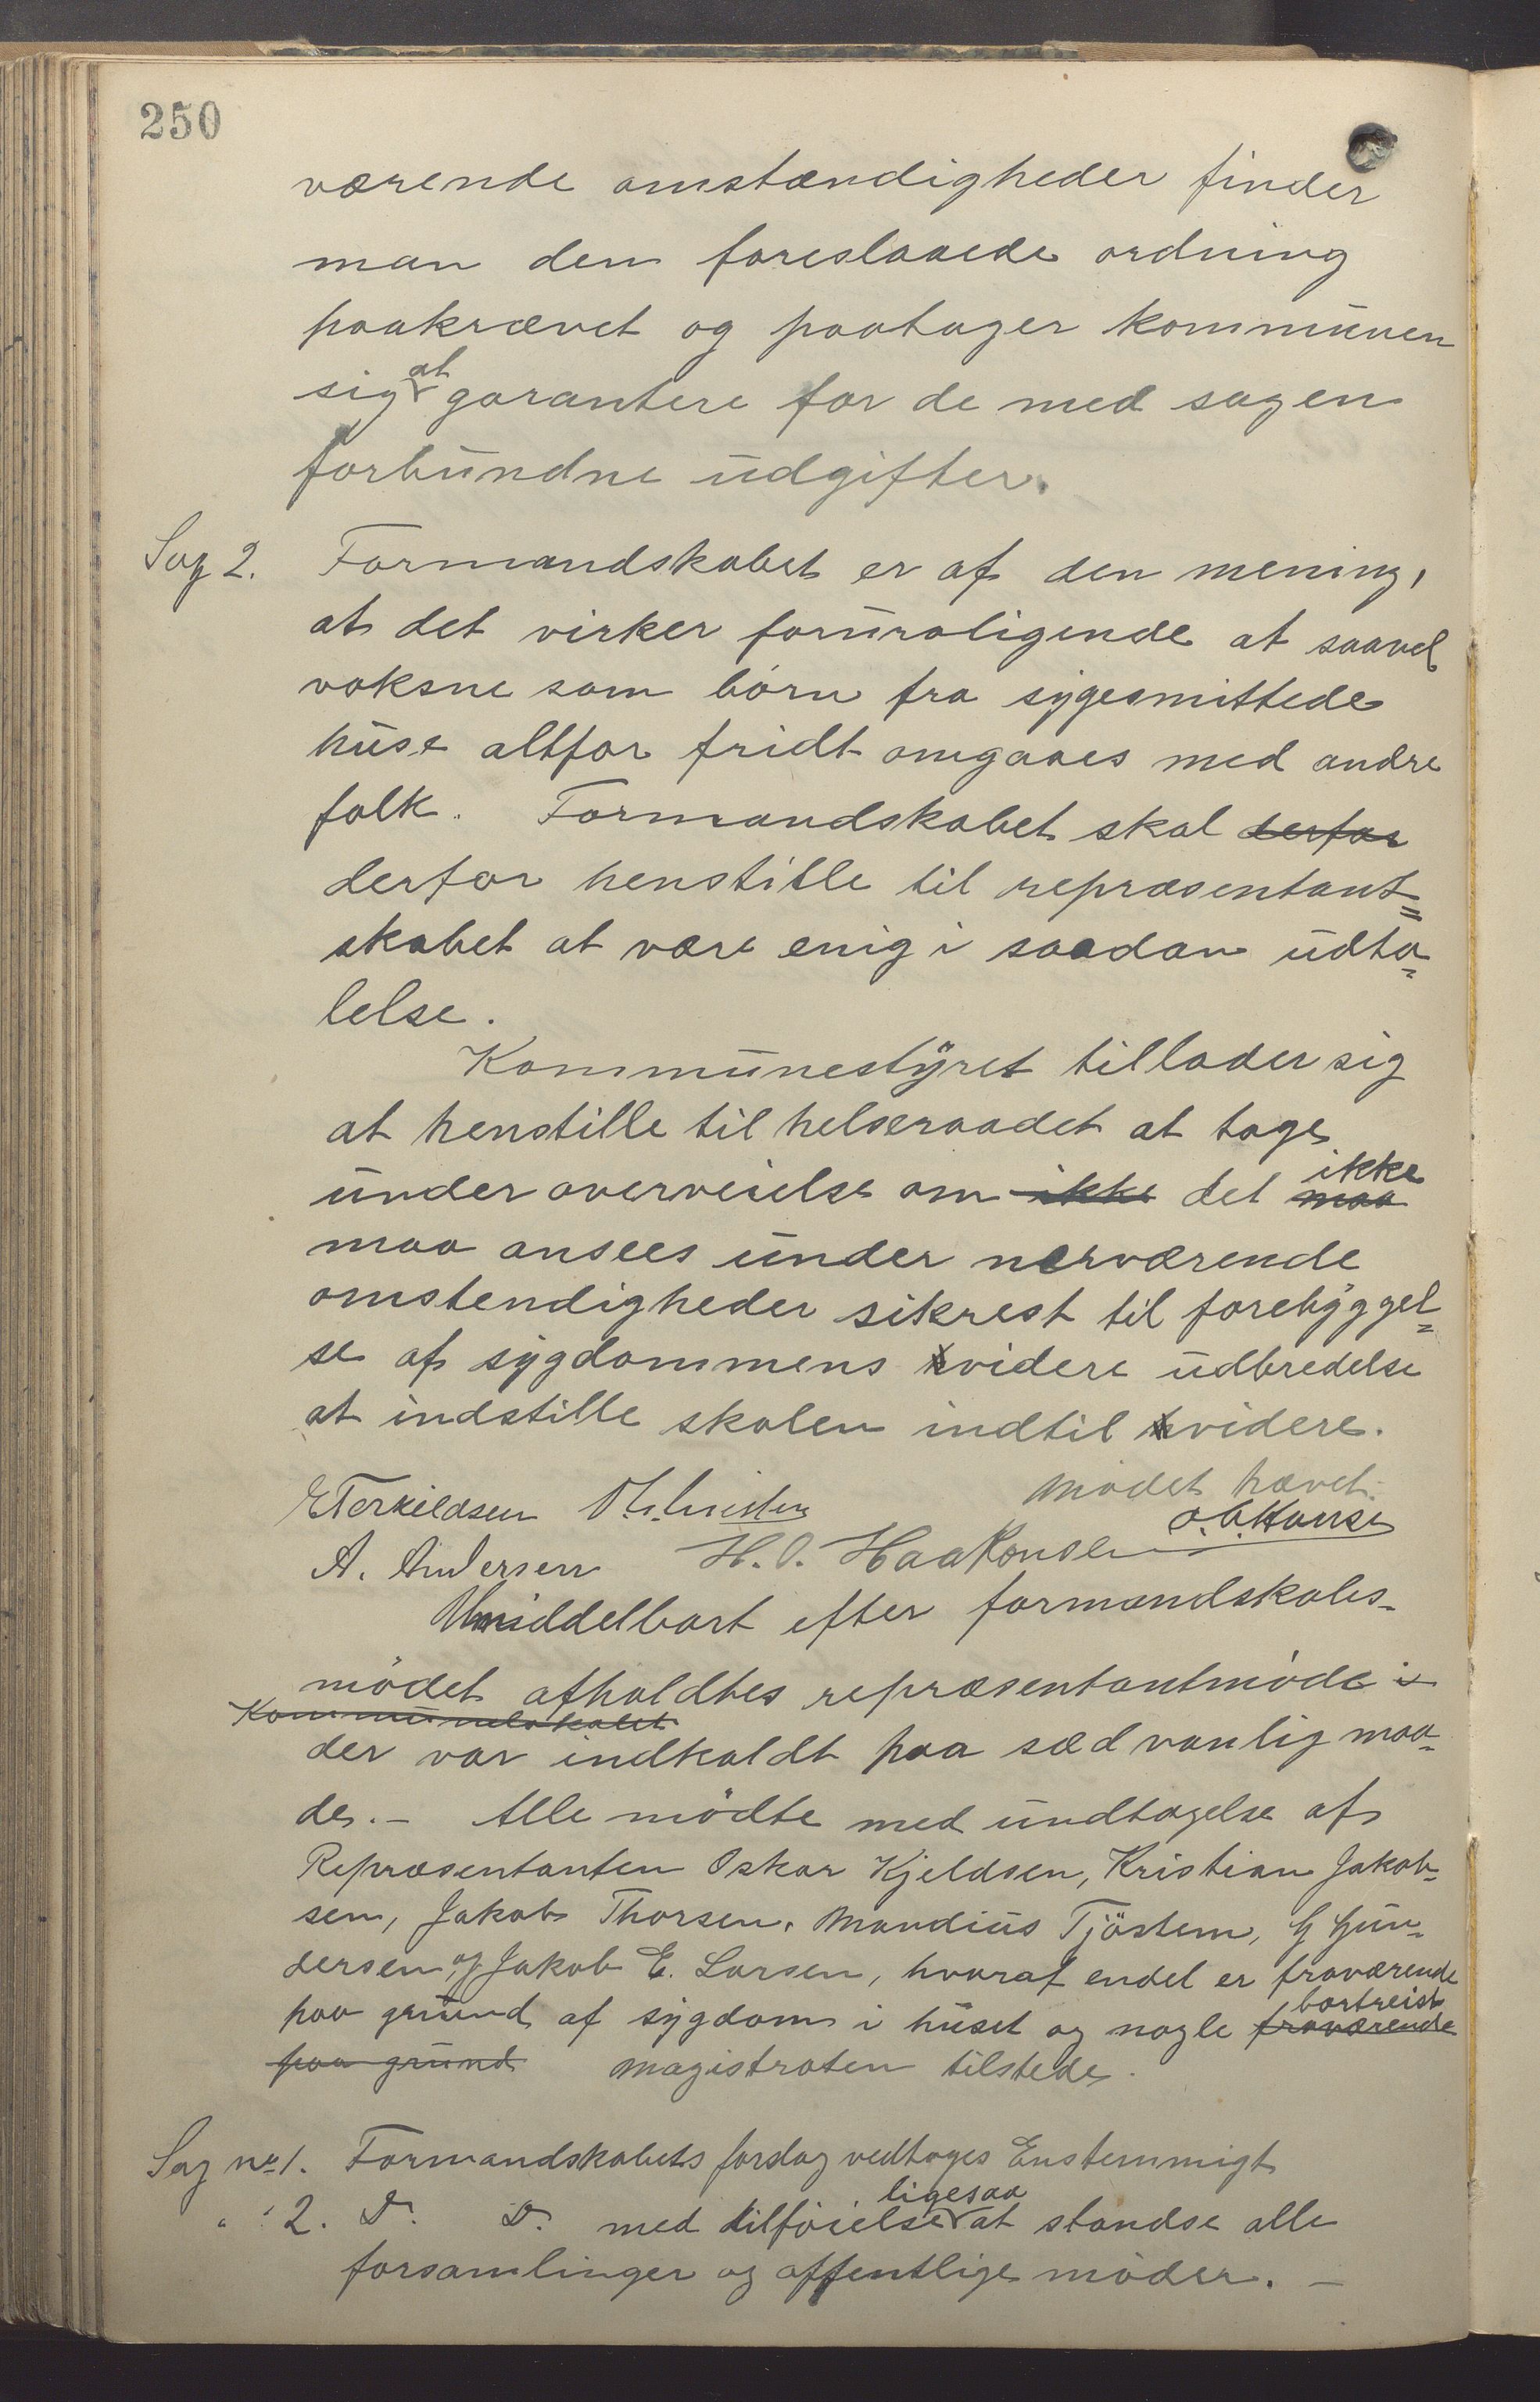 250
værende omstændigheder finder
man den foreslaaede ordning
paakrævet og paatager kommunen
sig at garantere for de med sagen
forbundne udgifter.
Sag 2. Formandskabet er af den mening,
at det virker foruroligende at saavel
voksne som börn fra sygesmittede
huse altfor fridt omgaaes med andre
folk. Formandskabet skal derfor
derfor henstille til repræsentant=
skabet at være enig i saadan udta=
lelse.
Kommunestyret tillader sig
at henstille til helseraadet at tage
under overveielse om ikke det maa ikke
maa ansees under nerværende
omstendigheder sikrest til forebyggel=
se af sygdommens videre udbredelse
at indstille skolen indtil videre.
Mödet hævet.
E Terkildsen
A. Andersen H. O. Haakonsen O. C. Hansen
Umiddelbart efter formandskabs-
mödet afholdtes repræsentantmöde i
Kommunelokalet
der var indkaldt paa sædvanlig maa=
de. – Alle mödte med undtagelse af
Repræsentanten Oskar Kjeldsen, Kristian Jakob=
sen, Jakob Thorsen, Mandius Tjöstem, G Gun=
dersen og Jakob E. Larsen, hvoraf endel er fraværende
paa grund af sygdom i huset og nogle fraværende bortreist
paa grund Magistraten tilstede.
Sag no 1. Formandskabets forslag vedtages Enstemmigt
" " 2. Do. Do. med tilföielse ligesaa at standse alle
forsamlinger og offentlige möder. –